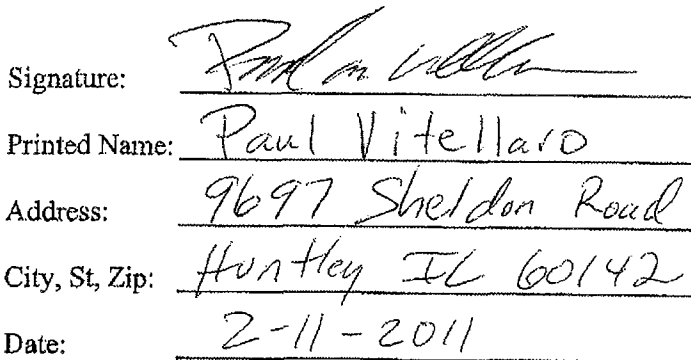 Signature:
Printed Name: Paul Vitellaro
Address: 9697 Sheldon Road
City, St, Zip: Huntley IL 60142
Date: 2-11-2011